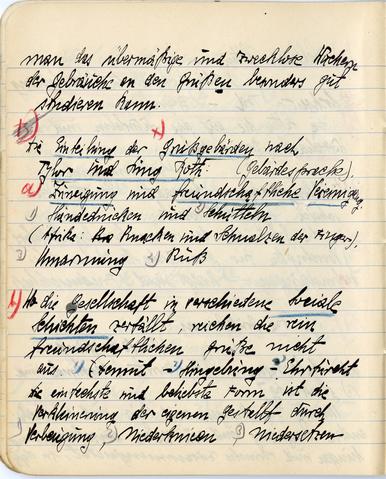 man das übermäßige und zwecklose Wuchern
der Gebräuche an den Grüßen besonders gut
studieren kann.
b)
Die Einteilung der Grußgebärden nach
Tylor und Ling Roth: (Gebärdesprache),
a) Zuneigung und freundschaftliche Vereinigung
1) Händedrücken und Schütteln
(Afrika: Knacken und Schnalzen der Finger),
2) Umarmung 3) Kuß
b) Wo die Gesellschaft in verschiedene soziale
Schichten zerfällt, reichen die rein
freundschaftlichen Grüße nicht
aus (Demut - Hingebung - Ehrfurcht
die einfachste und beliebteste Form ist die
Verkleinerung der eigenen Gestalt durch
1) Verbeugung, 2) Niederknien 3) Niedersetzen